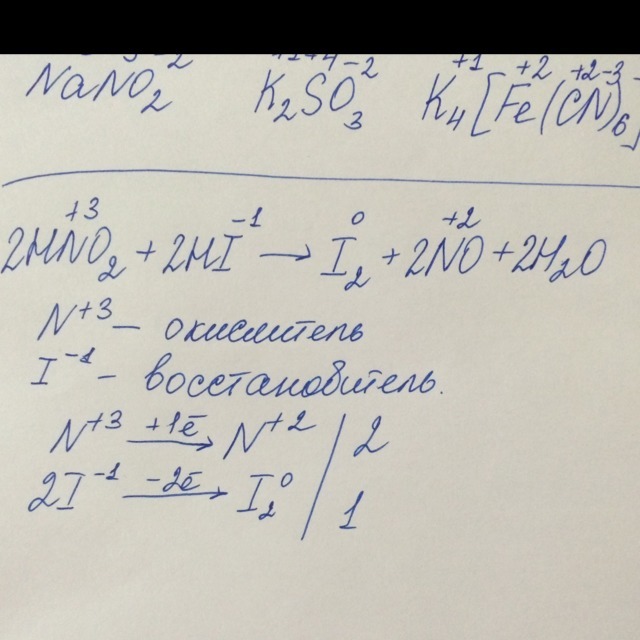 NaNO₂ K₂SO₃ K₄[Fe(CN)₆]
2HN⁺³O₂ + 2HI⁻¹ → I₂⁰ + 2N⁺²O + 2H₂O
N⁺³ – окислитель
I⁻¹ – восстановитель.
N⁺³ +1ē→ N⁺² | 2
2I⁻¹ −2ē→ I₂⁰ | 1